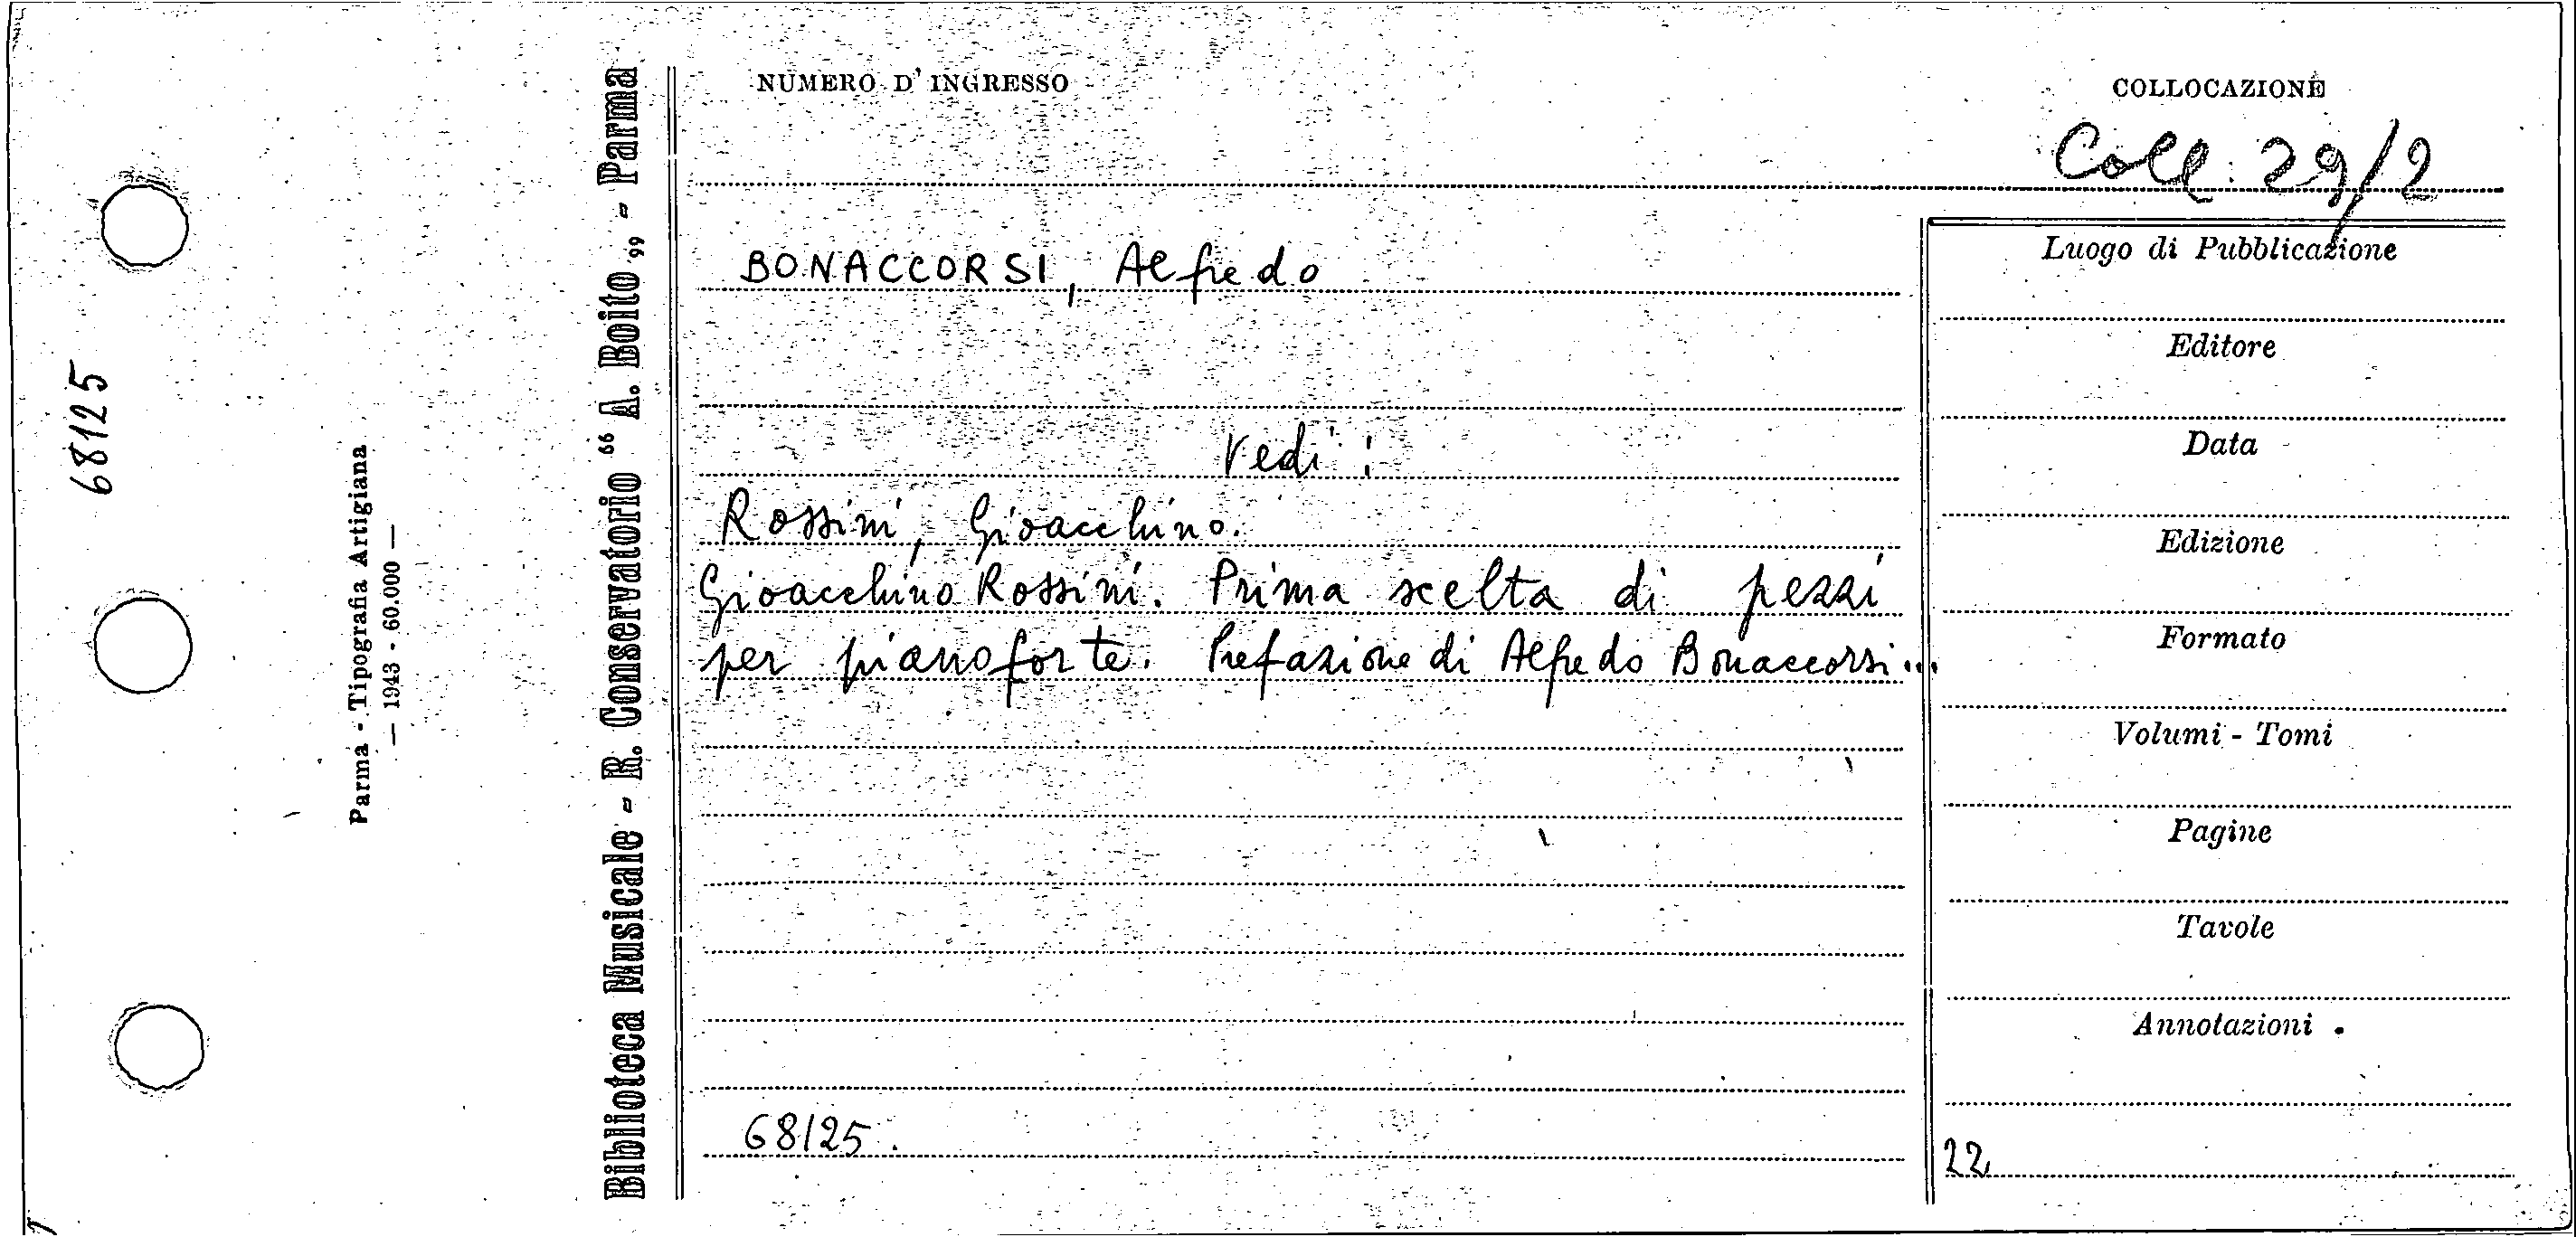 NUMERO D' INGRESSO
COLLOCAZIONE
Coll. 29/2
BONACCORSI, Alfredo
Vedi:
Rossini, Gioacchino.
Gioacchino Rossini. Prima scelta di pezzi
per pianoforte. Prefazione di Alfredo Bonaccorsi...
68125
Luogo di Pubblicazione
Editore
Data
Edizione
Formato
Volumi - Tomi
Pagine
Tavole
Annotazioni
22
Biblioteca Musicale - R. Conservatorio “ A. Boito „ - Parma
Parma - Tipografia Artigiana
— 1943 - 60.000 —
68125